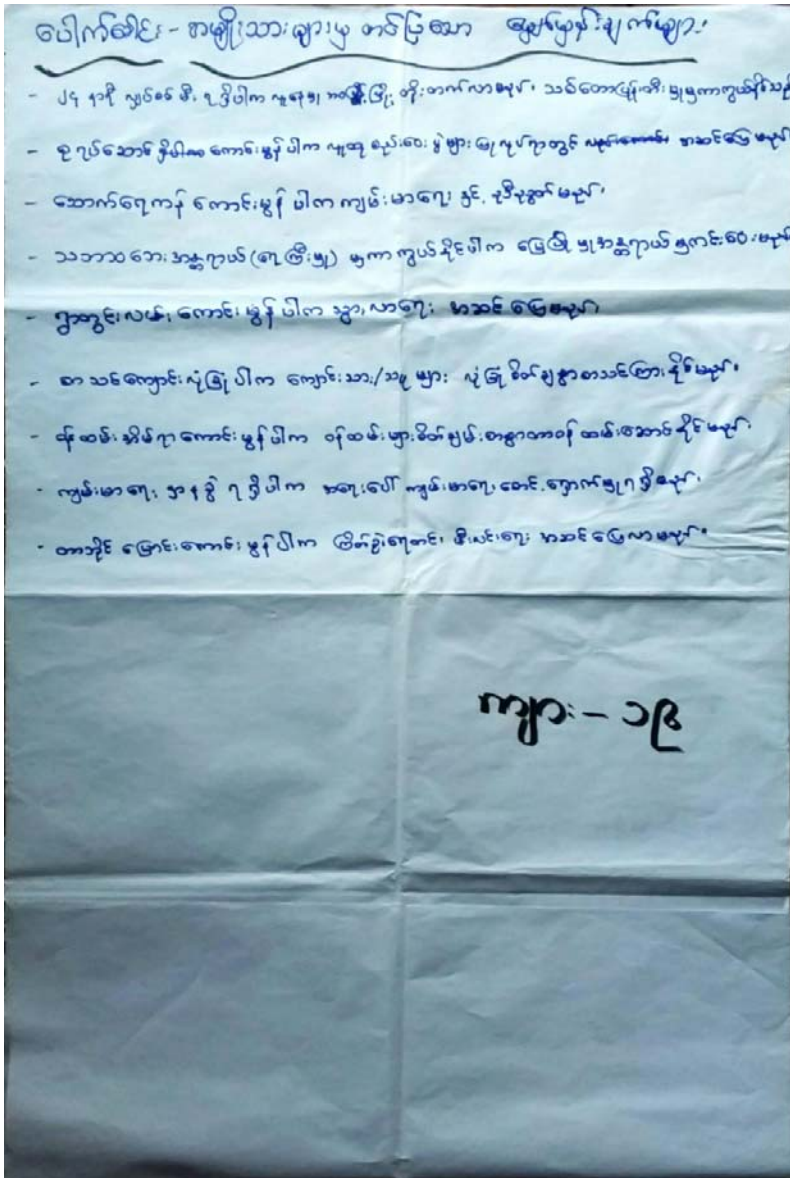 ပေါက်ခေါင်း - အမျိုးသားများမှ တင်ပြသော မျှော်မှန်းချက်များ
- ၂၄ နာရီ လျှပ်စစ်မီး ရရှိပါက လူနေမှု အဆင့်မြင့် တိုးတက်လာမည်။ သစ်တောပြုန်းတီးမှုမှကာကွယ်နိုင်သည်
- စုရပ်ဆောင် ရှိပါက ကောင်းမွန်ပါက လူထုစည်းဝေးပွဲများ ပြုလုပ်ရာတွင် အဆင်ပြေမည်
- သောက်ရေကန် ကောင်းမွန်ပါက ကျန်းမာရေး နှင့် ညီညွတ်မည်။
- သဘာဝဘေးအန္တရာယ် (ရေကြီးမှု) မှကာကွယ်နိုင်ပါက မြေပြိုမှုအန္တရာယ်မှကင်းဝေးမည်
- ရွာတွင်းလမ်း ကောင်းမွန်ပါက သွားလာရေး အဆင်ပြေမည်။
- စာသင်ကျောင်းလုံခြုံပါက ကျောင်းသား/သူများ လုံခြုံစိတ်ချစွာစာသင်ကြားနိုင်မည်။
- ဝန်ထမ်းအိမ်ရာကောင်းမွန်ပါက ဝန်ထမ်းများစိတ်ချမ်းသာစွာတာဝန်ထမ်းဆောင်နိုင်မည်။
- ကျန်းမာရေးဌာနခွဲ ရရှိပါက အရေးပေါ် ကျန်းမာရေးစောင့်ရှောက်မှုရရှိမည်။
- တာဘိုင် မြောင်းကောင်းမွန်ပါက ကြိတ်ခွဲရေတင်၊ မီးလင်းရေး အဆင်ပြေလာမည်။
ကျား - ၁၉